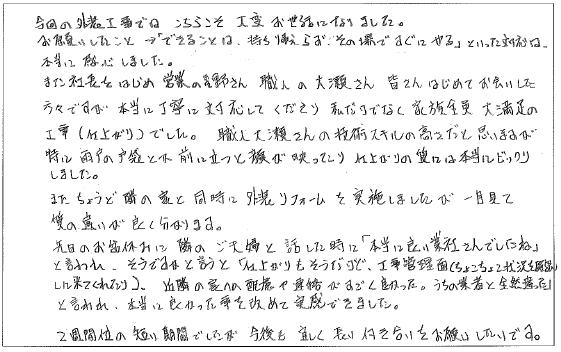 今回の外装工事では こちらこそ 大変お世話になりました。
お願いしたこと→「できることは、持ち帰らず、その場ですぐにやる」といった対応は、
本当に感心しました。
また社長をはじめ 営業の野さん 職人の大瀬さん 皆さんはじめてお会いした
方々ですが 本当に丁寧に対応してくださり 私だけでなく 家族全員 大満足の
工事(仕上がり)でした。 職人大瀬さんの技術スキルの高さだと思いますが
特に雨戸の戸袋とか 前に立つと顔が映ったり 仕上がりの質には本当にビックリ
しました。
またちょうど隣の家と同時に外装リフォームを実施しましたが 一目見て
質の違いが良く分かります。
先日のお盆休みに 隣のご夫婦と話した時に「本当に良い業社さんでしたね」
と言われ、そうですかと言うと「仕上がりもそうだけど、工事管理面(ちょこちょこと状況を確認
しに来てくれたり)、近隣の家への配慮や連絡がすごく良かった。うちの業者と全然違った」
と言われ、本当に良かった事を改めて実感できました。
2週間位の短い期間でしたが 今後も宜しく長い付き合いをお願いしたいです。